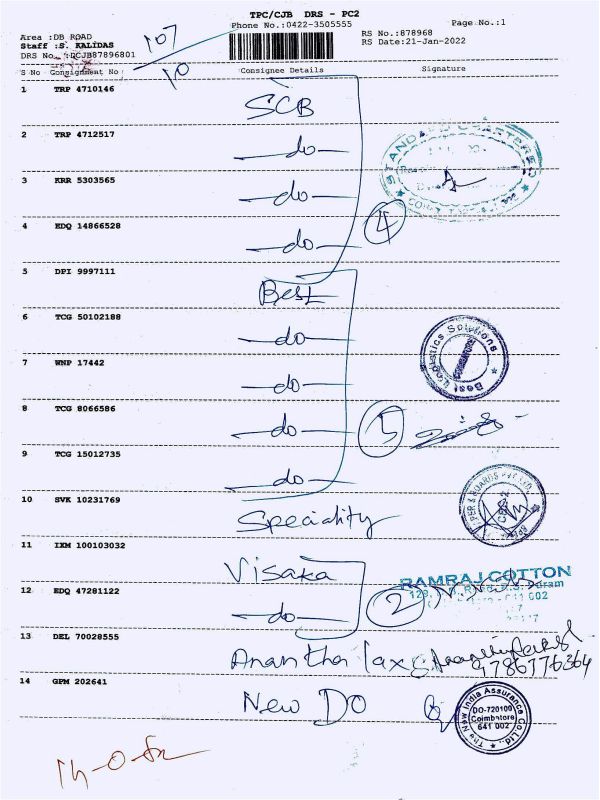 TPC/CJB DRS - PC2
Phone No.:0422-3505555
Page No.:1
Area :DB ROAD
Staff :S. KALIDAS
DRS No. :DCJB87896801
RS No.:878968
RS Date:21-Jan-2022
107
10
S No Consignment No Consignee Details Signature
1 TRP 4710146 SCB
2 TRP 4712517 -do-
STANDARD CHARTERED
3 KRR 5303565 -do-
4 EDQ 14866528 -do- 4
5 DPI 9997111 Best
6 TCG 50102188 -do-
Best Logistics Solutions
COIMBATORE
7 WNP 17442 -do-
8 TCG 8066586 -do- 5
9 TCG 15012735 -do-
10 SVK 10231769 Speciality
PAPER & BOARDS PVT LTD
CBE-2
11 IXM 100103032 Visaka
RAMRAJ COTTON
12 EDQ 47281122 -do- 2
641 002
13 DEL 70028555 Anantha lax
9786776364
14 GPM 202641 New DO
The New India Assurance Co.Ltd.
DO-720100
Coimbatore
641 002